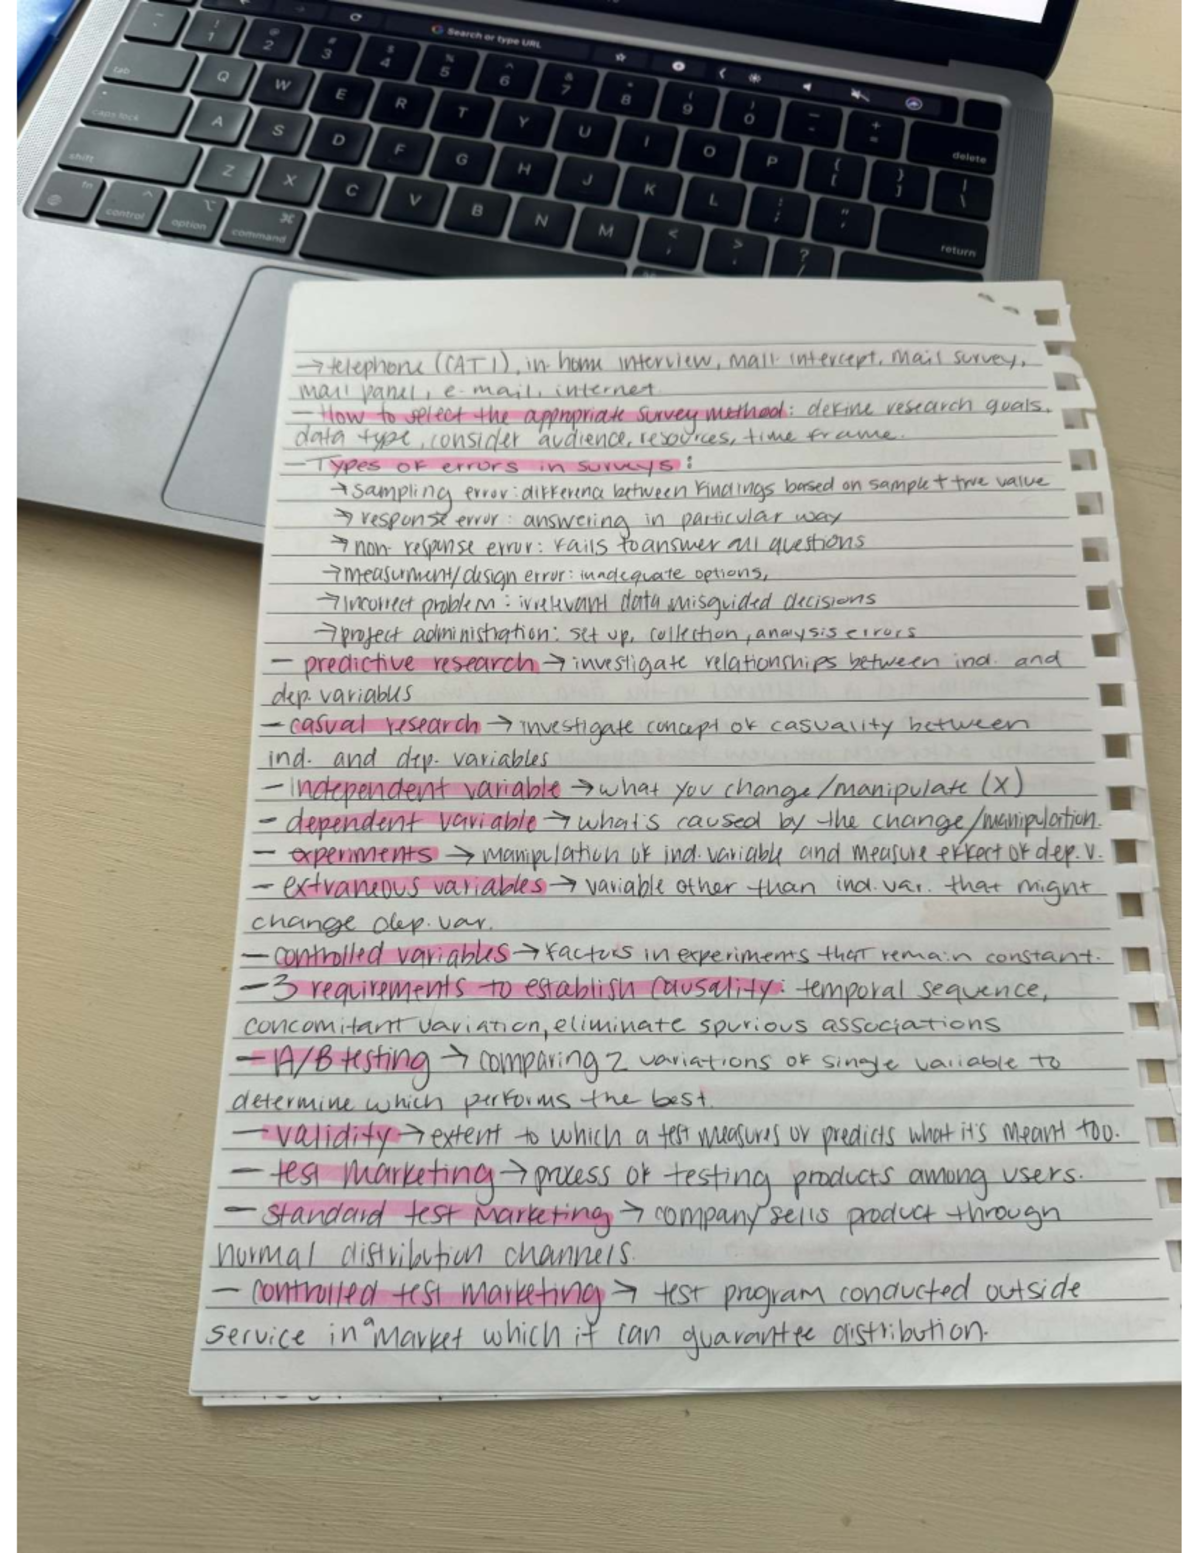 Search or type URL
! 1
@ 2
# 3
$ 4
% 5
^ 6
& 7
* 8
( 9
) 0
— -
+ =
delete
tab
Q W E R T Y U I O P { [ } ] | \
caps lock
A S D F G H J K L : ; " '
return
shift
Z X C V B N M < , > . ? /
fn
control
option
command
→ telephone (CATI), in home interview, mall intercept, mail survey,
mail panel, e-mail, internet
– How to select the appropriate survey method: define research goals,
data type, consider audience, resources, time frame.
– Types of errors in surveys:
→ sampling error: difference between findings based on sample + true value
→ response error: answering in particular way
→ non response error: fails to answer all questions
→ measurment/design error: inadequate options,
→ incorrect problem: irrelevant data, misguided decisions
→ project administration: set up, collection, analysis errors
– predictive research → investigate relationships between ind. and
dep. variables
– casual research → investigate concept of casuality between
ind. and dep. variables
– independent variable → what you change/manipulate (X)
– dependent variable → what's caused by the change/manipulation.
– experiments → manipulation of ind. variable and measure effect of dep. v.
– extraneous variables → variable other than ind. var. that might
change dep. var.
– controlled variables → factors in experiments that remain constant.
– 3 requirements to establish causality: temporal sequence,
concomitant variation, eliminate spurious associations
– A/B testing → comparing 2 variations of single variable to
determine which performs the best.
– validity → extent to which a test measures or predicts what it's meant too.
– test marketing → process of testing products among users.
– standard test marketing → company sells product through
normal distribution channels.
– controlled test marketing → test program conducted outside
service in a market which it can guarantee distribution.